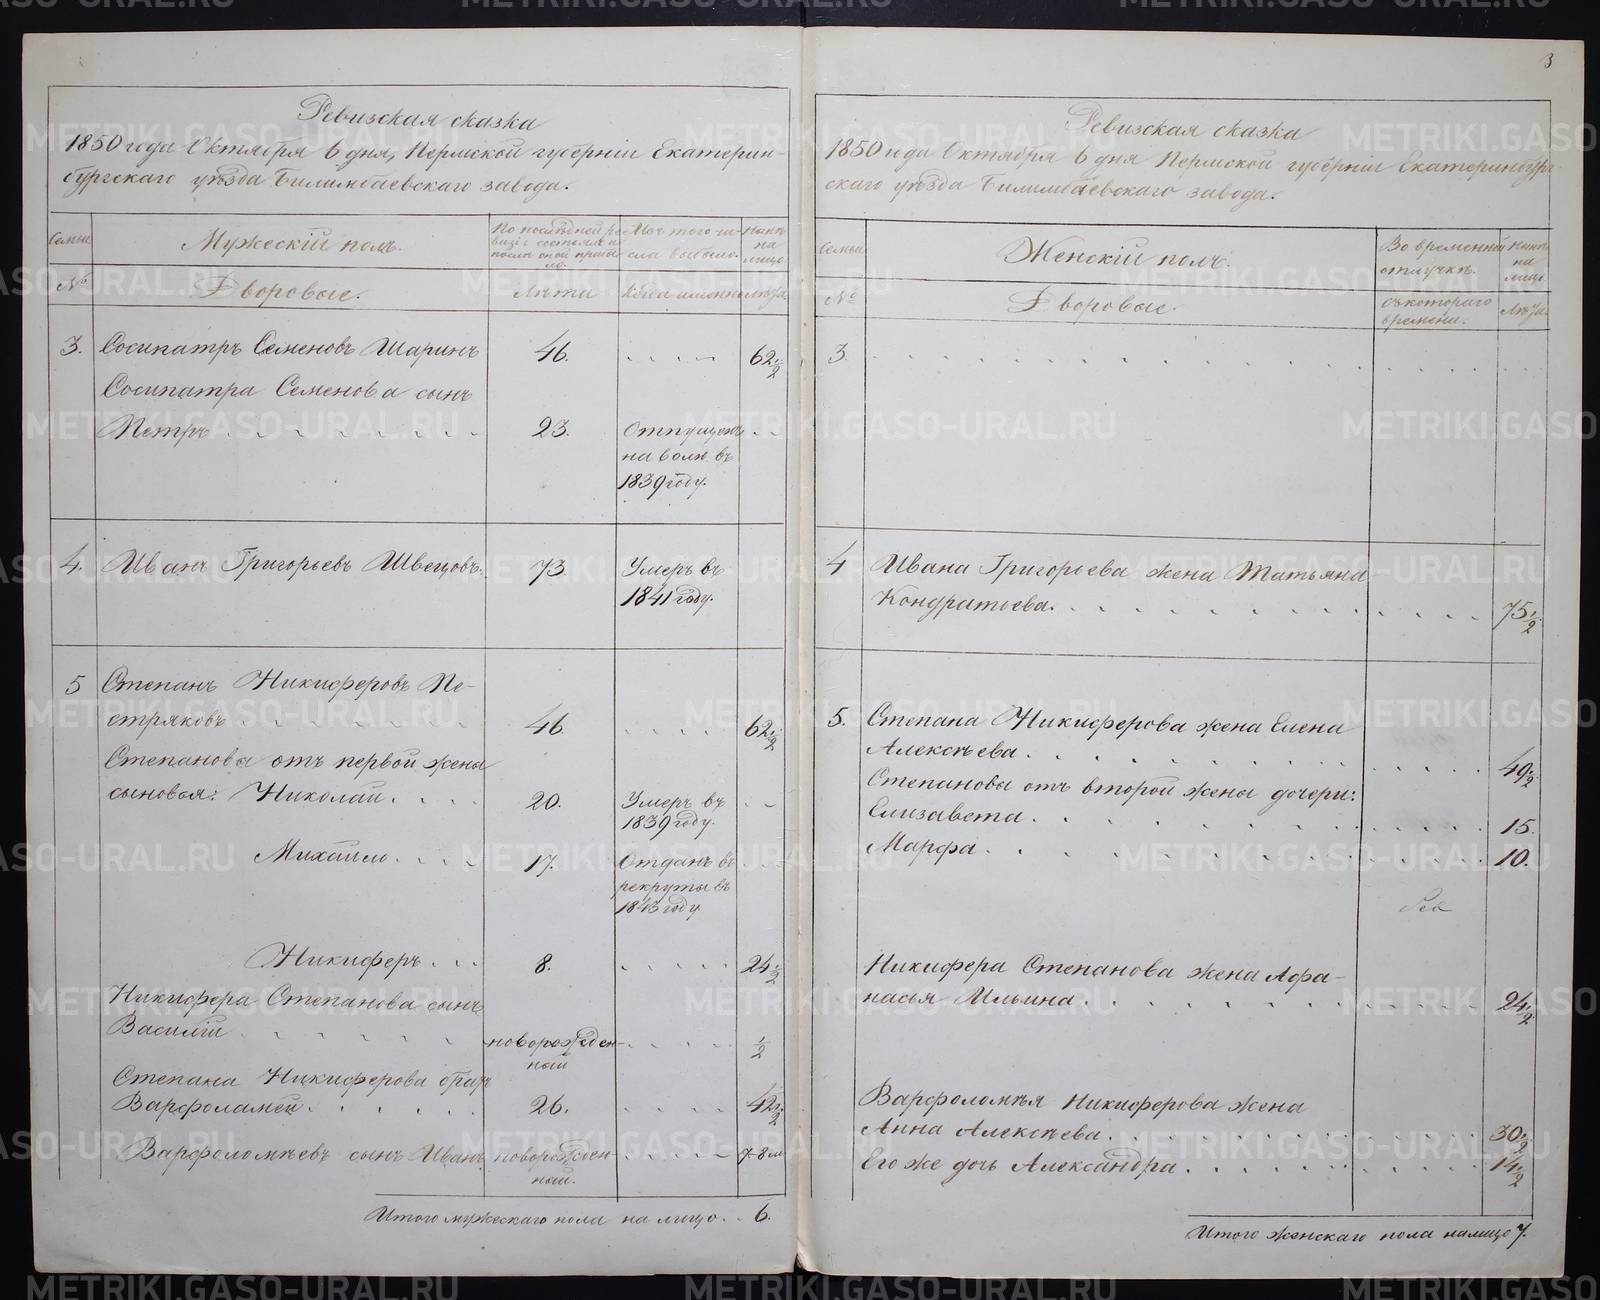 Ревизская сказка
1850 года Октября 6 дня, Пермской губернiи Екатерин-
бургскаго уѣзда Билимбаевскаго завода.
Семьи
Мужескiй полъ.
По послѣдней ре
визiи состояло и
послѣ оной прибы
ло.
Изъ того чи-
сла выбыло.
Нынѣ
на
лицо
№
Дворовые.
Лѣта
Когда именно
Лѣта.
3. Сосипатръ Семеновъ Шаринъ 46. 62 1/2
Сосипатра Семенова сынъ
Петръ 23. Отпущенъ
на волю въ
1839 году.
4. Иванъ Григорьевъ Швецовъ. 73. Умеръ въ
1841 году.
5 Степанъ Никиферовъ Пе-
стряковъ 46. 62 1/2
Степанова отъ первой жены
сыновья: Николай. 20. Умеръ въ
1839 году.
Михайло. 17. Отданъ въ
рекруты въ
1843 году.
Никиферъ 8. 24 1/2
Никифера Степанова сынъ
Василiй новорожден-
ный 1/2
Степана Никиферова братъ
Варфоламей 26. 42 1/2
Варфоломѣевъ сынъ Иванъ новорожден-
ный. 7-8 м
Итого мужескаго пола на лицо 6.
3
Ревизская сказка
1850 года Октября 6 дня Пермской губернiи Екатеринбург-
скаго уѣзда Билимбаевскаго завода.
Семьи
Женскiй полъ.
Во временной
отлучкѣ.
Нынѣ
на
лицо
№
Дворовые.
съ котораго
времени.
Лѣта.
3.
4 Ивана Григорьева жена Татьяна
Кондратьева. 75 1/2
5. Степана Никиферова жена Елена
Алексѣева. 49 1/2
Степановы отъ второй жены дочери:
Елизавета 15.
Марфа 10.
Никифера Степанова жена Афа-
насья Ильина. 24 1/2
Варфоломѣя Никиферова жена
Анна Алексѣева. 30 1/2
Его же дочь Александра. 14 1/2
Итого женскаго пола налицо 7.
METRIKI.GASO-URAL.RU